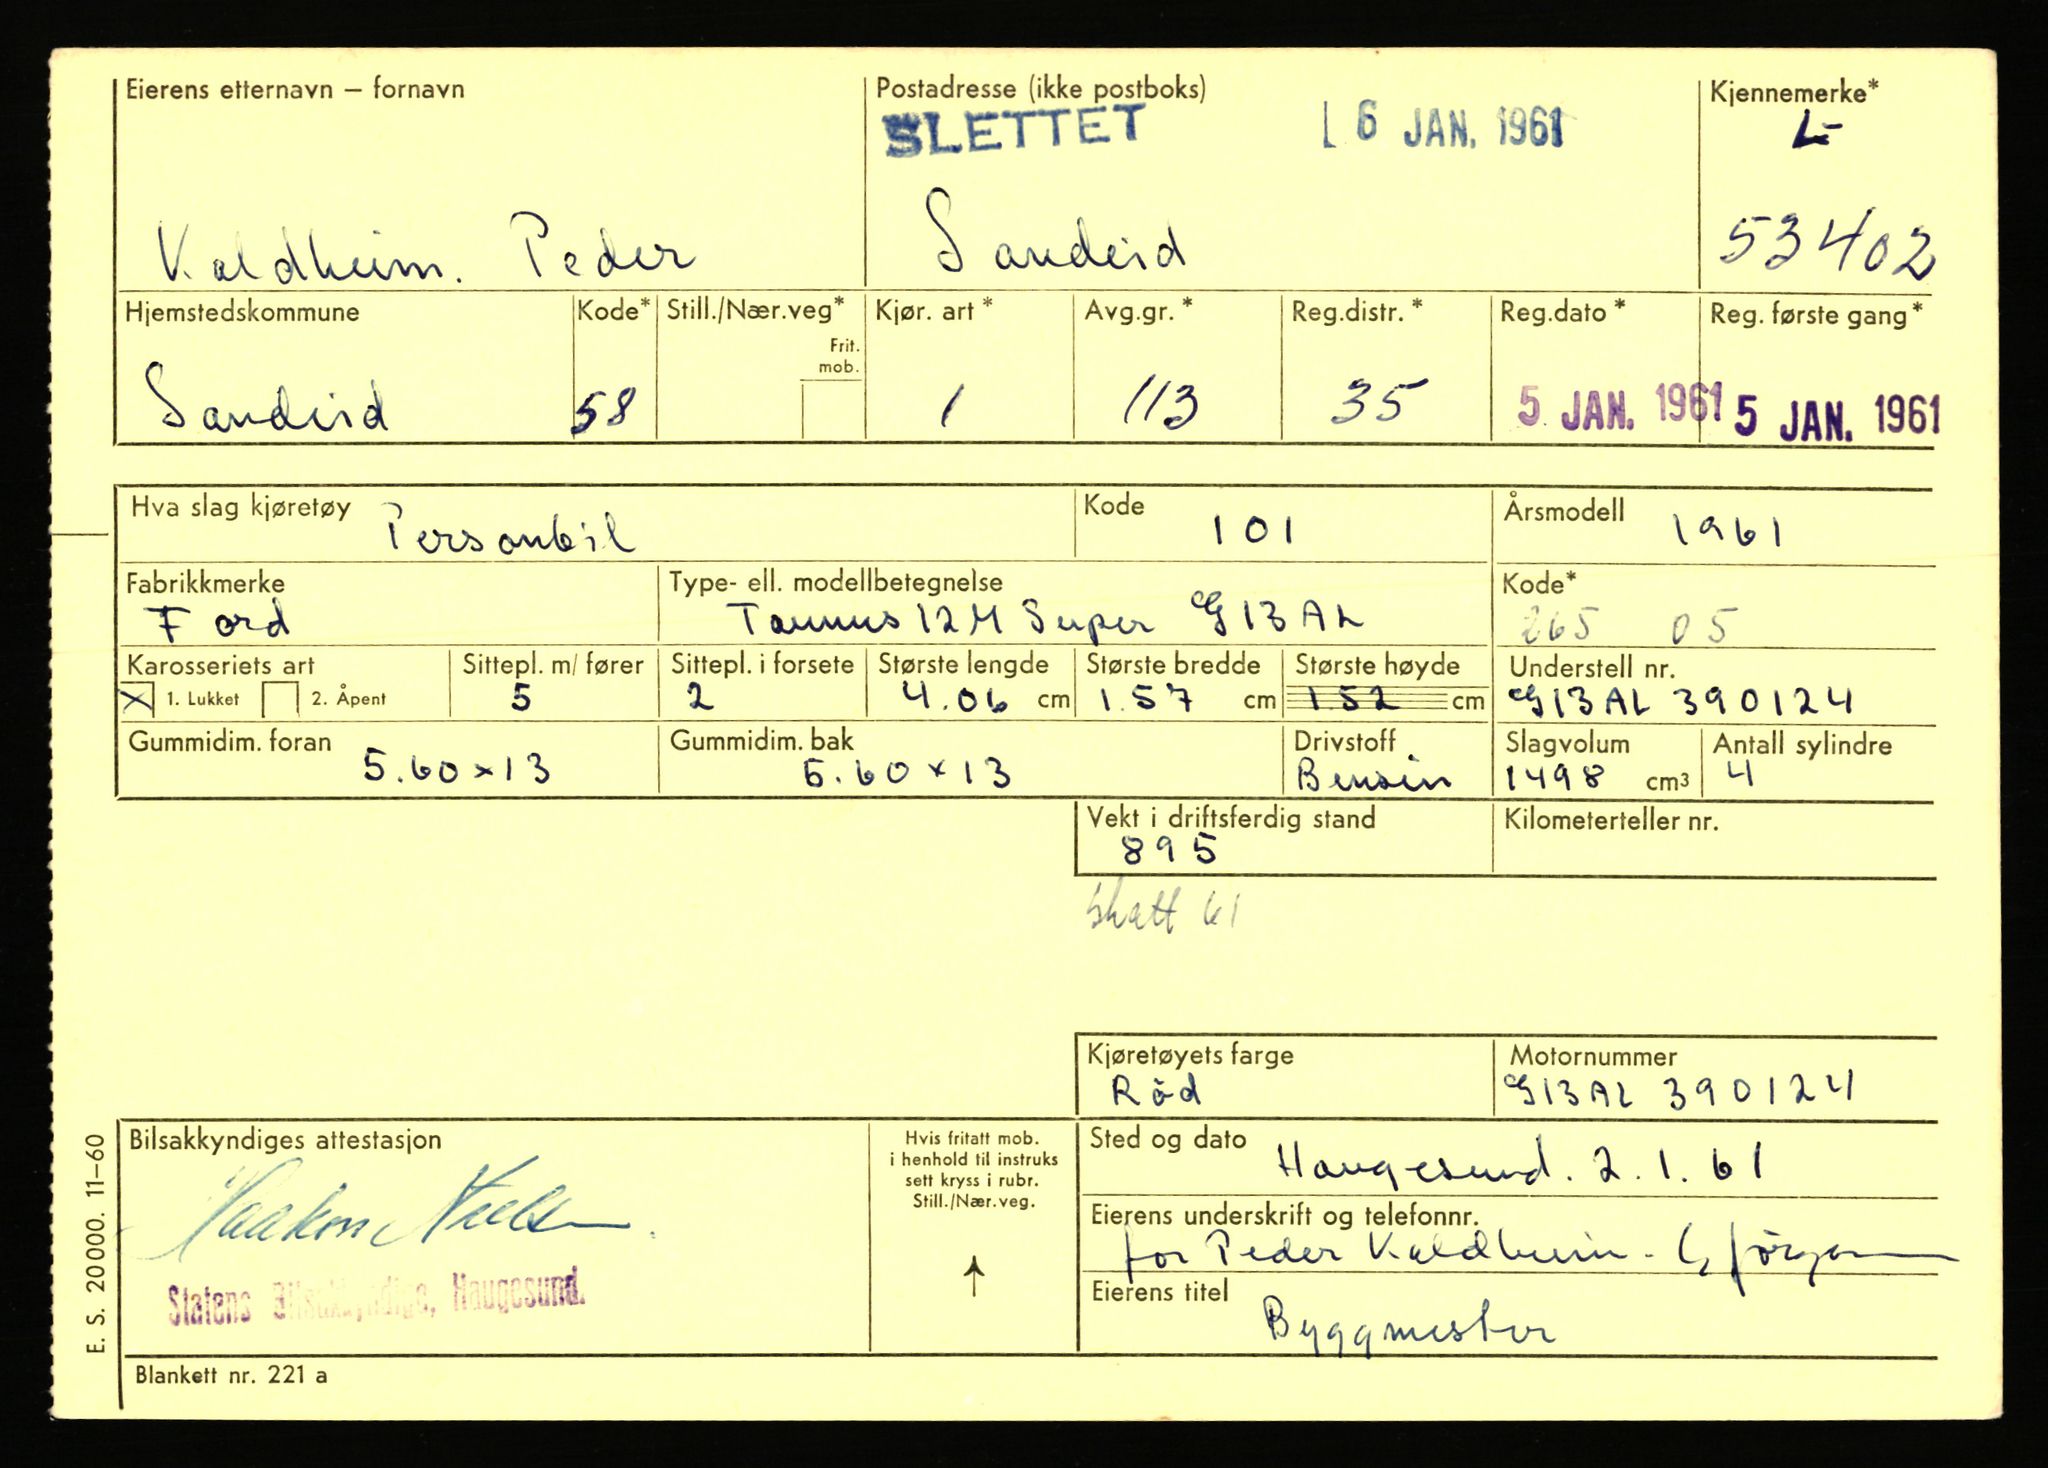 Eierens etternavn – fornavn
Postadresse (ikke postboks)
Kjennemerke*
SLETTET 6 JAN. 1961
L-
Valdheim. Peder
Sandeid
53402
Hjemstedskommune
Kode*
Still./Nær.veg*
Frit. mob.
Kjør. art *
Avg.gr. *
Reg.distr. *
Reg.dato *
Reg. første gang*
Sandeid
58
1
113
35
5 JAN. 1961
5 JAN. 1961
Hva slag kjøretøy
Personbil
Kode
101
Årsmodell
1961
Fabrikkmerke
Ford
Type- ell. modellbetegnelse
Taunus 12M Super G13AL
Kode*
265 05
Karosseriets art
X 1. Lukket 2. Åpent
Sittepl. m/ fører
5
Sittepl. i forsete
2
Største lengde
4.06 cm
Største bredde
1.57 cm
Største høyde
1.52 cm
Understell nr.
G13AL 390124
Gummidim. foran
5.60 x 13
Gummidim. bak
5.60 x 13
Drivstoff
Bensin
Slagvolum
1498 cm3
Antall sylindre
4
Vekt i driftsferdig stand
895
Kilometerteller nr.
skatt 61
Kjøretøyets farge
Röd
Motornummer
G13AL 390124
Bilsakkyndiges attestasjon
Haakon Nielsen
Statens Bilsakkyndige, Haugesund.
Hvis fritatt mob.
i henhold til instruks
sett kryss i rubr.
Still./Nær.veg.
Sted og dato
Haugesund. 2.1.61
Eierens underskrift og telefonnr.
for Peder Valdheim -
Eierens titel
Byggmester
E. S. 20000. 11–60
Blankett nr. 221 a